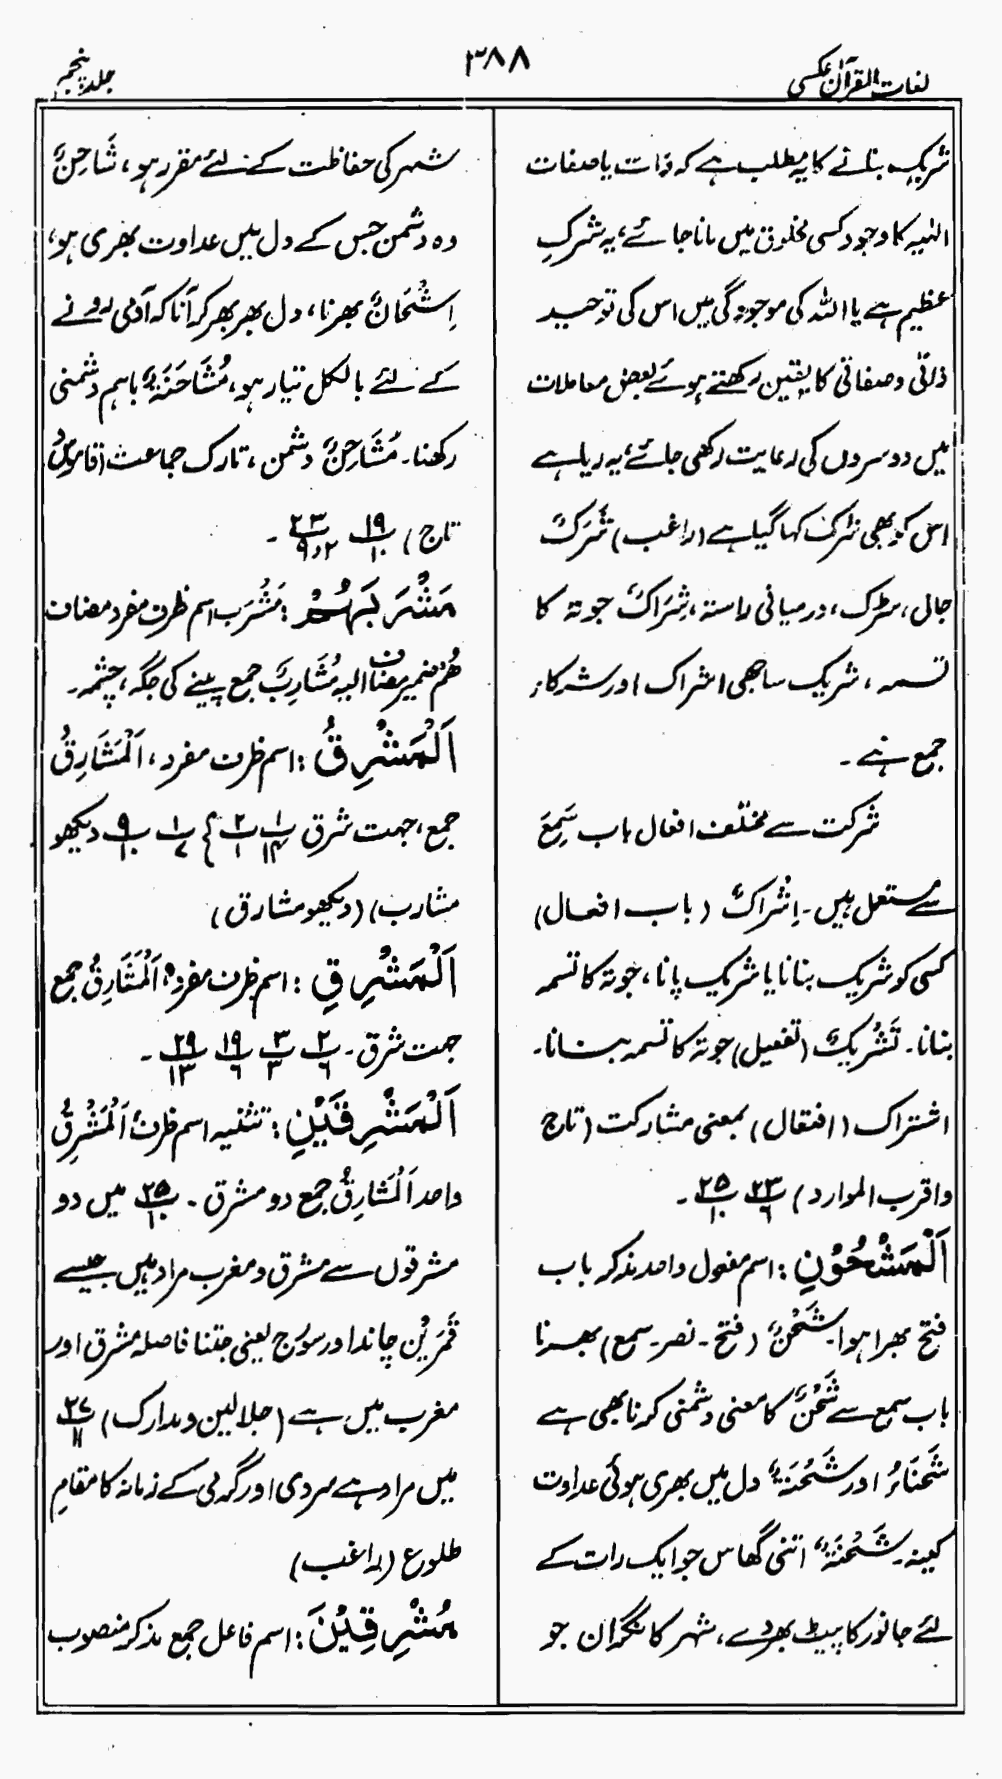 لغات القرآن عکسی
۳۸۸
جلد پنجم
شریک بنانے کا یہ مطلب ہے کہ ذات یا صفات
الٰہیہ کا وجود کسی مخلوق میں مانا جائے، یہ شرکِ
عظیم ہے یا اللہ کی موجودگی میں اس کی توحید
ذاتی وصفاتی کا یقین رکھتے ہوئے بعض معاملات
میں دوسروں کی رعایت رکھی جائے، یہ ریا ہے
اس کو بھی شرک کہا گیا ہے (راغب) شَرَکٌ
جال، سڑک، درمیانی راستہ، شِرَاکٌ جوتہ کا
تسمہ، شریک ساجھی اشراک اور شرکاء
جمع ہے۔
شرکت سے مختلف افعال باب سَمِعَ
سے مستعمل ہیں۔ اِشْراکٌ (باب افعال)
کسی کو شریک بنانا یا شریک پانا، جوتہ کا تسمہ
بنانا۔ تَشْرِیکٌ (تفعیل) جوتہ کا تسمہ بنانا۔
اشتراک (افتعال) بمعنی مشارکت (تاج
واقرب الموارد) ۲۳/۶ ۲۵/۱۰ ۔
اَلْمَشْحُوْنِ: اسم مفعول واحد مذکر باب
فتح بھرا ہوا۔ شَحْنٌ (فتح۔ نصر۔ سمع) بھرنا
باب سمع سے شَحْنٌ کا معنی دشمنی کرنا بھی ہے
شَحْنَاءُ اور شَحْنَۃٌ دل میں بھری ہوئی عداوت
کینہ۔ شَحْنَۃٌ اتنی گھاس جو ایک رات کے
لئے جانور کا پیٹ بھر دے، شہر کا نگران جو
شہر کی حفاظت کے لئے مقرر ہو، شَاحِنٌ
وہ دشمن جس کے دل میں عداوت بھری ہو،
اِشْحَانٌ بھرنا، دل بھر بھر کر آنا کہ آدمی رونے
کے لئے بالکل تیار ہو، مُشَاحَنَۃٌ باہم دشمنی
رکھنا۔ مُشَاحِنٌ دشمن، تارک جماعت (قاموس
تاج) ۱۹/۱۰ ۲۳/۹،۲ ۔
مَشْرَبَہُمْ: مَشْرَب اسم ظرف مفرد مضاف
ھُمْ ضمیر مضاف الیہ مَشَارِبُ جمع پینے کی جگہ، چشمہ۔
اَلْمَشْرِقُ: اسم ظرف مفرد، اَلْمَشَارِقُ
جمع، جہت شرق ۱/۱۴ ۲/۱ } ۱/۷ ۹/۱۰ دیکھو
مشارب) (دیکھو مشارق)
اَلْمَشْرِقِ: اسم ظرف مفرد، اَلْمَشَارِقُ جمع
جہت شرق۔ ۲/۶ ۳/۳ ۱۹/۶ ۲۹/۱۳ ۔
اَلْمَشْرِقَیْنِ: تثنیہ اسم ظرف اَلْمَشْرِقُ
واحد اَلْمَشَارِقُ جمع دو مشرق۔ ۲۵/۱۰ میں دو
مشرقوں سے مشرق و مغرب مراد ہیں جیسے
قَمَرَیْن چاند اور سورج یعنی جتنا فاصلہ مشرق اور
مغرب میں ہے (جلالین ومدارک) ۲۷/۱۱
میں مراد ہے سردی اور گرمی کے زمانہ کا مقامِ
طلوع (راغب)
مُشْرِقِیْنَ: اسم فاعل جمع مذکر منصوب